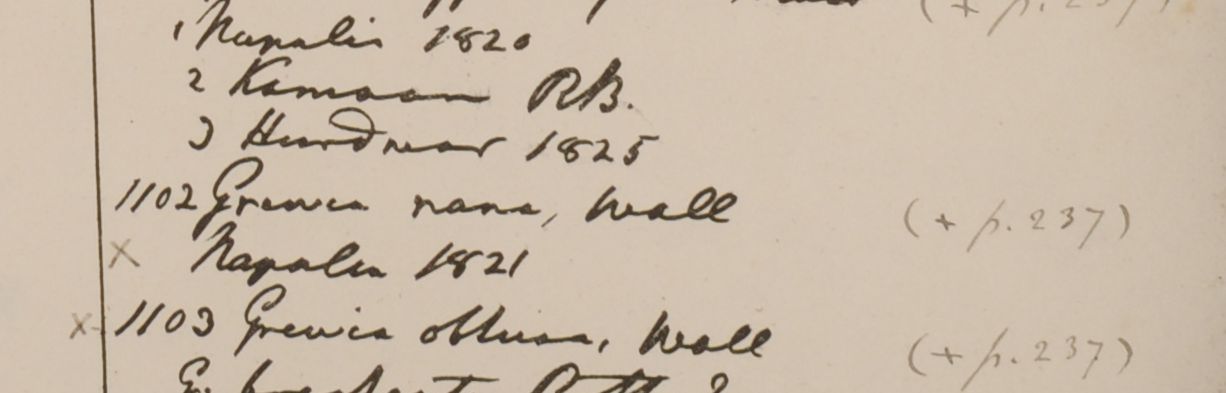 (+ p. 237)
1 Napalia 1820
2 Kamaon RB.
3 Hurdwar 1825
1102 Grewia nana, Wall (+ p. 237)
x Napalia 1821
x 1103 Grewia obtusa, Wall (+ p. 237)